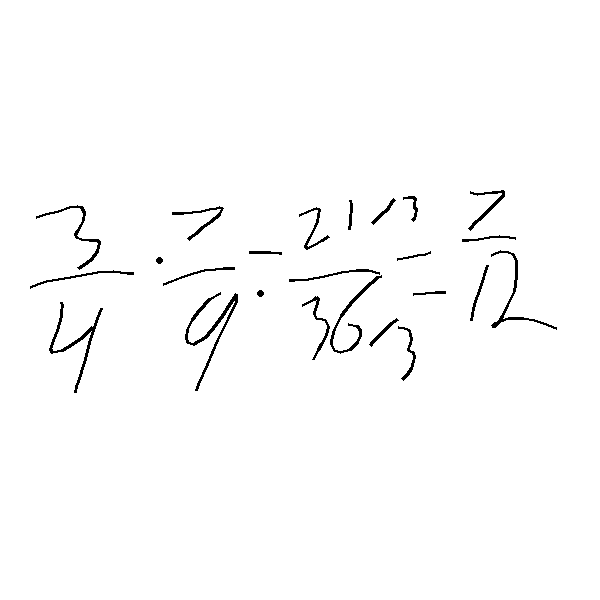 3/4 · 7/9 = 21/3 / 36/3 = 7/12